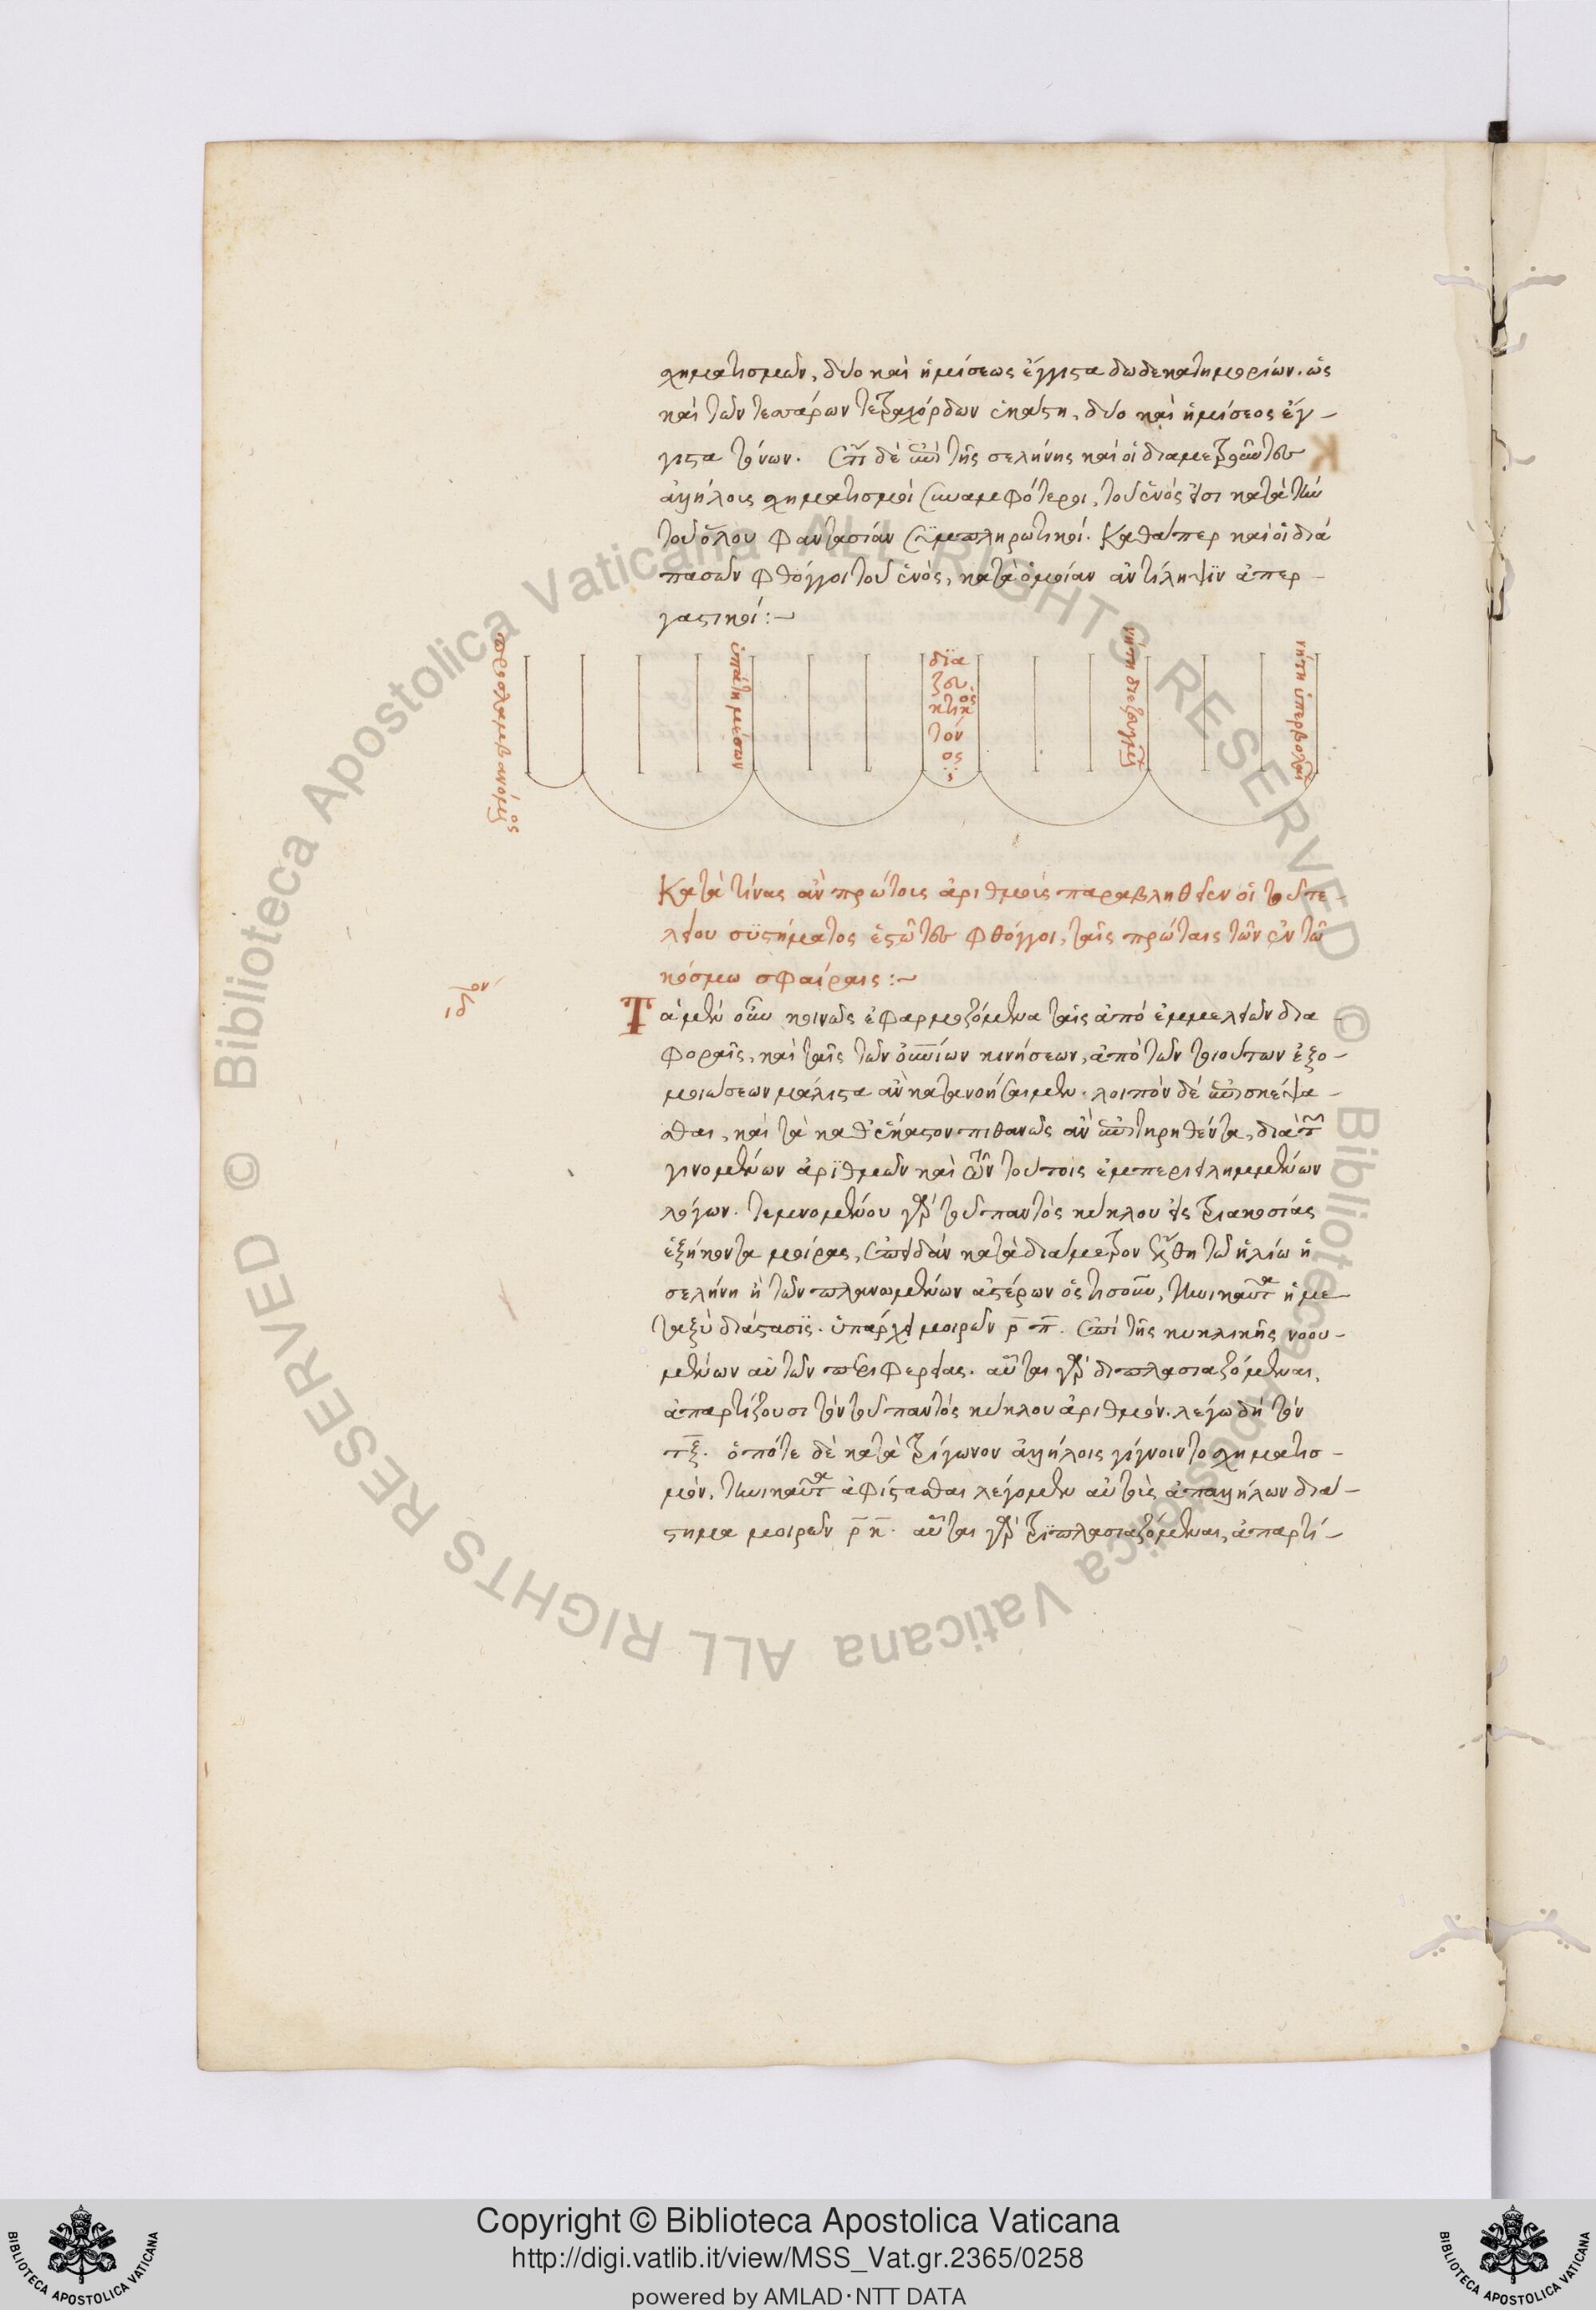 χηματισμῶν, δύο καὶ ἡμίσεως ἔγγιστα δωδεκατημορίων. ὡς
καὶ τῶν τεσσάρων τετραχόρδων ἑκάστη, δύο καὶ ἡμίσεος ἔγ-
γιστα τόνων. ἐπὶ δὲ τῆς σελήνης καὶ οἱ διαμετροῦντες
ἀλλήλους χηματισμοὶ συναμφότεροι, τοῦ ἑνός εἰσι κατὰ τὴν
τοῦ ὅλου φαντασίαν συμπληρωτικοί. Καθάπερ καὶ οἱ διὰ
πασῶν φθόγγοι τοῦ ἑνὸς, κατὰ ὁμοίαν ἀντίληψϊν ἀπερ-
γαστικοί:~
προσλαμβανόμενος
ὑπάτη μέσων
δϊα
ζευ
κτικὸς
τόν
ος
νήτη διεζευγμένων
νήτη ὑπερβολαίων
Κατὰ τίνας ἂν πρώτους ἀριθμοὺς παραβληθεῖεν οἵ τοῦ τε-
λείου συστήματος ἑστῶτες φθόγγοι, ταῖς πρώταις τῶν ἐν τῶ
κόσμω σφαίραις:~
Τὰ μὲν οὖν κοινῶς ἐφαρμοζόμενα ταῖς ἀπὸ ἐμμελειῶν δια-
φοραῖς, καὶ ταῖς τῶν οὐρανίων κινήσεων, ἀπὸ τῶν τοιούτων ἐξο-
μοιώσεων μάλιστα ἂν κατανοήσαιμεν. λοιπὸν δὲ ἐπισκέψα-
σθαι, καὶ τὰ καθ' ἕκαστον πιθανῶς ἂν ἐπιτηρηθέντα, διὰ τῶν
γινομένων ἀριθμῶν καὶ τῶν ἐν τούτοις ἐμπεριειλημμένων
λόγων. τεμνομένου γὰρ τοῦ παντὸς κύκλου εἰς τριακοσίας
ἑξήκοντα μοίρας, ἐπειδὰν κατὰ διάμετρον στῇ τῶ ἡλίω ἡ
σελήνη ἢ τῶν πλανωμένων ἀστέρων ὅστισοῦν, τηνικαῦτα ἡ με-
ταξὺ διάστασϊς. ὑπάρχει μοιρῶν ρ̄ π̄. ἐπὶ τῆς κυκλικῆς νοου-
μένων αὐτῶν περιφερείας. αὗται γὰρ διπλασιαζόμεναι,
ἀπαρτίζουσι τὸν τοῦ παντὸς κύκλου ἀριθμόν. λέγω δὴ τὸν
τ̄ξ̄. ὁπότε δὲ κατὰ τρίγωνον ἀλλήλοις γίγνοιντο χηματισ-
μόν, τηνικαῦτα ἀφίστασθαι λέγομεν αὐτοὺς ἀπ' ἀλλήλων διά-
στημα μοιρῶν ρ̄ κ̄. αὗται γὰρ τριπλασιαζόμεναι, ἀπαρτί-
Copyright © Biblioteca Apostolica Vaticana
http://digi.vatlib.it/view/MSS_Vat.gr.2365/0258
powered by AMLAD·NTT DATA
BIBLIOTECA APOSTOLICA VATICANA
BIBLIOTECA APOSTOLICA VATICANA
© Biblioteca Apostolica Vaticana ALL RIGHTS RESERVED
© Biblioteca Apostolica Vaticana ALL RIGHTS RESERVED